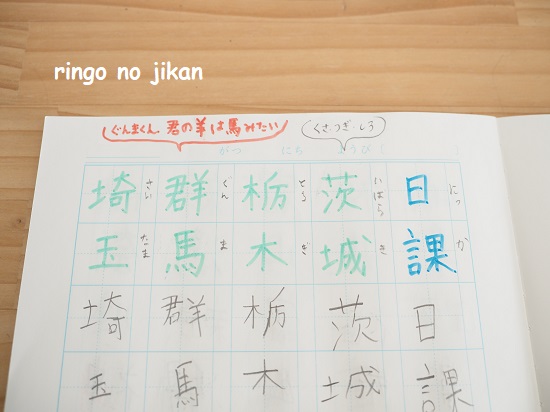 ringo no jikan
ぐんまくん 君の羊は馬みたい
くさ・つぎ・しろ
がつ にち ようび
日課
にっか
日課
茨城
いばらき
茨城
栃木
とちぎ
栃木
群馬
ぐんま
群馬
埼玉
さいたま
埼玉